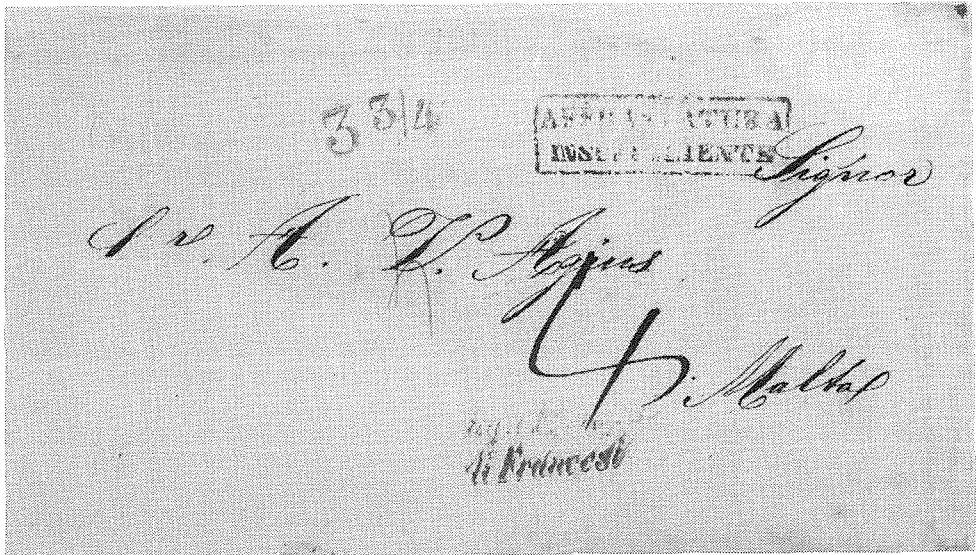 3 3/4
AFFRANCATURA
INSUFFICIENTE
Signor
A. V. Agius
4
Malta
di Francesi